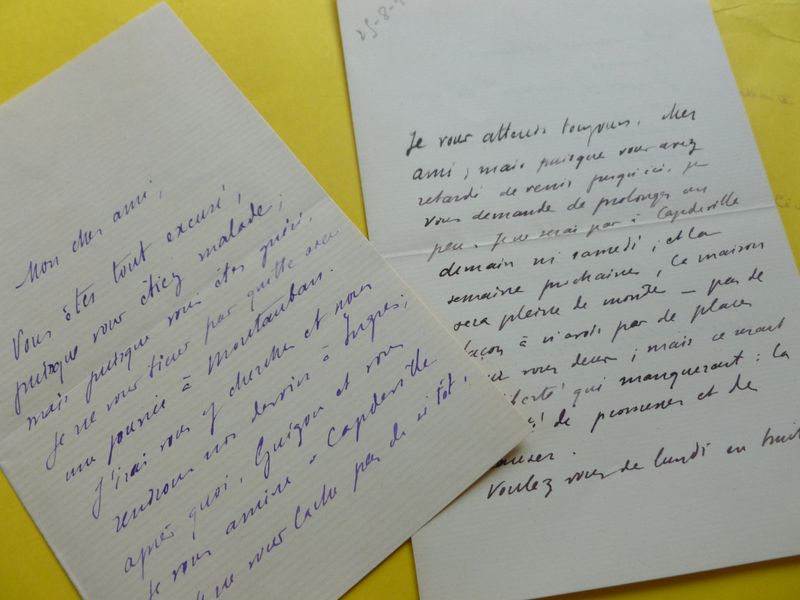 Mon cher ami,
Vous êtes tout excusé,
puisque vous étiez malade ;
mais puisque vous êtes guéri,
Je ne vous tiens pas quitte avec
une journée à Montauban.
J'irai vous y chercher et nous
rendrons nos devoirs à Ingres ;
après quoi, Guigou et vous
Je vous amène à Capdeville
Je ne vous lache pas de si tôt,
25-8-
Je vous attends toujours, cher
ami ; mais puisque vous avez
retardé de venir jusqu'ici, je
vous demande de prolonger un
peu. Je ne serai pas à Capdeville
demain ni samedi ; et la
semaine prochaine, la maison
sera pleine de monde — pas de
façon à n'avoir pas de place
vous deux ; mais ce serait
liberté qui manquerait : la
de promener et de
causer.
Voulez vous de lundi en huit